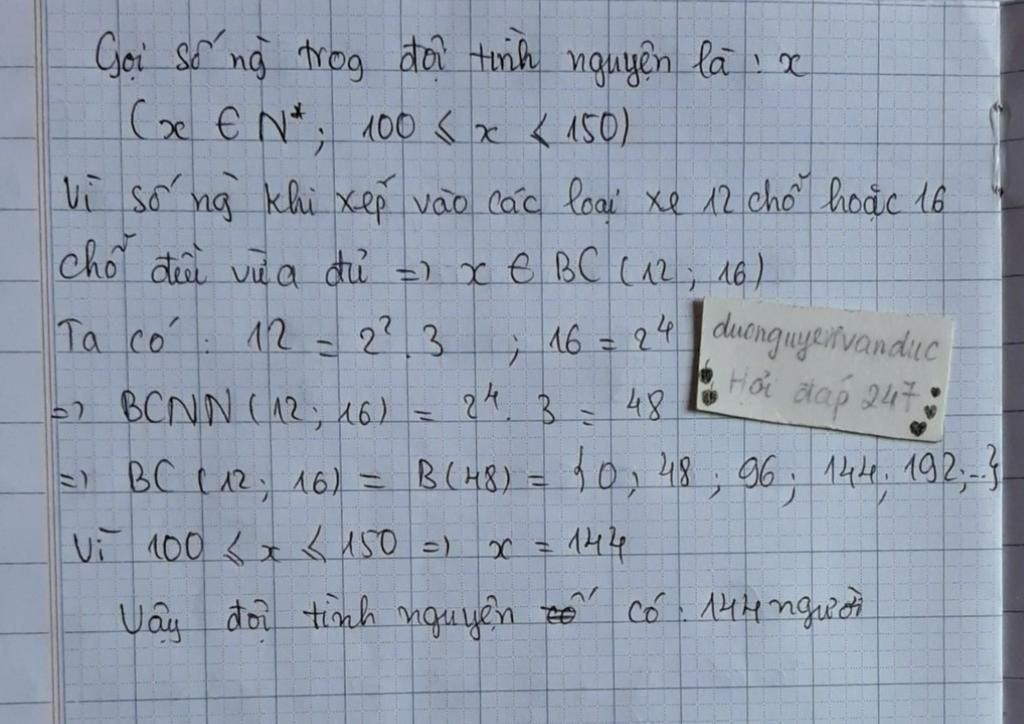 Gọi số ng̀ trog đội tình nguyện là : x
(x ∈ N*; 100 ≤ x ≤ 150)
Vì số ng̀ khi xếp vào các loại xe 12 chỗ hoặc 16
chỗ đều vừa đủ => x ∈ BC (12; 16)
Ta có : 12 = 2².3 ; 16 = 2⁴
=> BCNN (12; 16) = 2⁴. 3 = 48
=> BC (12; 16) = B(48) = {0; 48; 96; 144; 192;..}
Vì 100 ≤ x ≤ 150 => x = 144
Vậy đội tình nguyện có : 144 người
duonguyenvanduc
Hỏi đáp 247